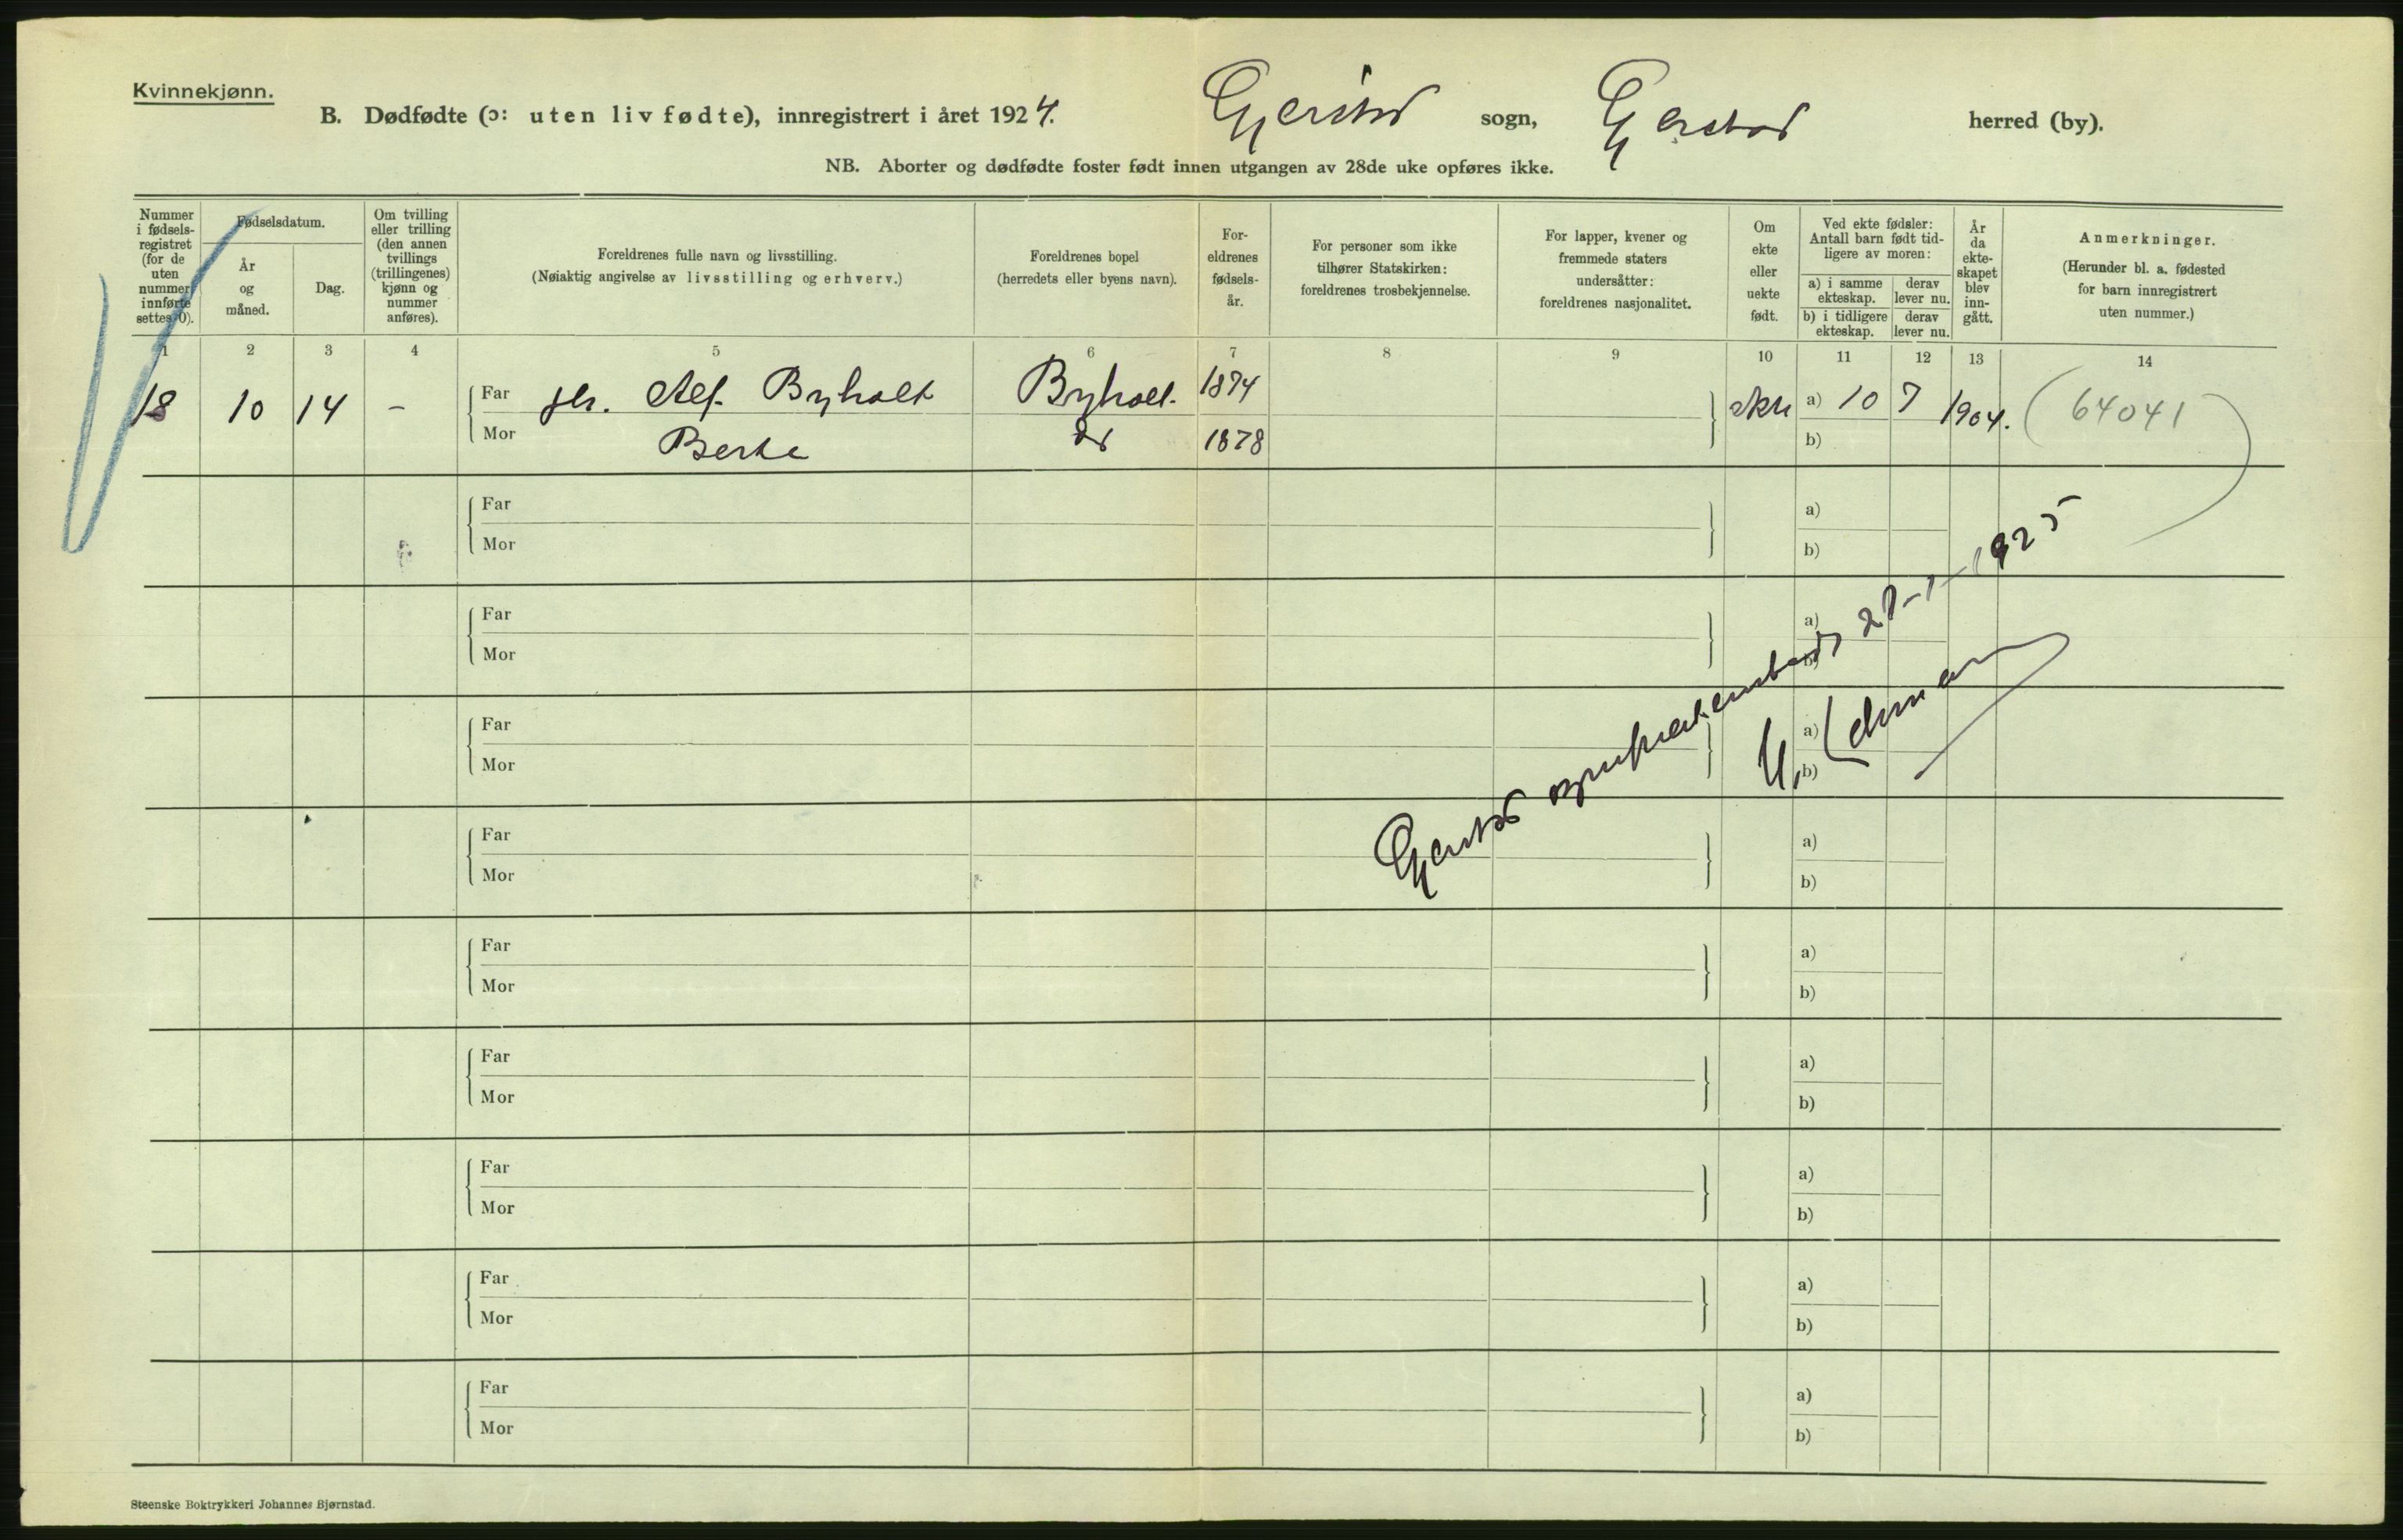 Kvinnekjønn.
B. Dødfødte (ɔ: uten liv fødte), innregistrert i året 1924. Gjerstad sogn, Gjerstad herred (by).
NB. Aborter og dødfødte foster født innen utgangen av 28de uke opføres ikke.
Nummer i fødselsregistret (for de uten nummer innførte settes 0).
Fødselsdatum.
År og måned.
Dag.
Om tvilling eller trilling (den annen tvillings (trillingenes) kjønn og nummer anføres).
Foreldrenes fulle navn og livsstilling.
(Nøiaktig angivelse av livsstilling og erhverv.)
Foreldrenes bopel
(herredets eller byens navn).
Foreldrenes fødselsår.
For personer som ikke tilhører Statskirken: foreldrenes trosbekjennelse.
For lapper, kvener og fremmede staters undersåtter: foreldrenes nasjonalitet.
Om ekte eller uekte født.
Ved ekte fødsler: Antall barn født tidligere av moren:
a) i samme ekteskap. derav lever nu.
b) i tidligere ekteskap. derav lever nu.
År da ekteskapet blev inngått.
Anmerkninger.
(Herunder bl. a. fødested for barn innregistrert uten nummer.)
1 2 3 4 5 6 7 8 9 10 11 12 13 14
18 10 14 - Far Alf Byholt Byholt. 1874 ekte a) 10 7 1904. (64041)
Mor Berte 1878 b)
Far a)
Mor b)
Far a)
Mor b)
Far a)
Mor b)
Far a)
Mor b)
Far a)
Mor b)
Far a)
Mor b)
Far a)
Mor b)
Far a)
Mor b)
Far a)
Mor b)
Gjerstad sogneprestembede 1925
Lehmann
Steenske Boktrykkeri Johannes Bjørnstad.